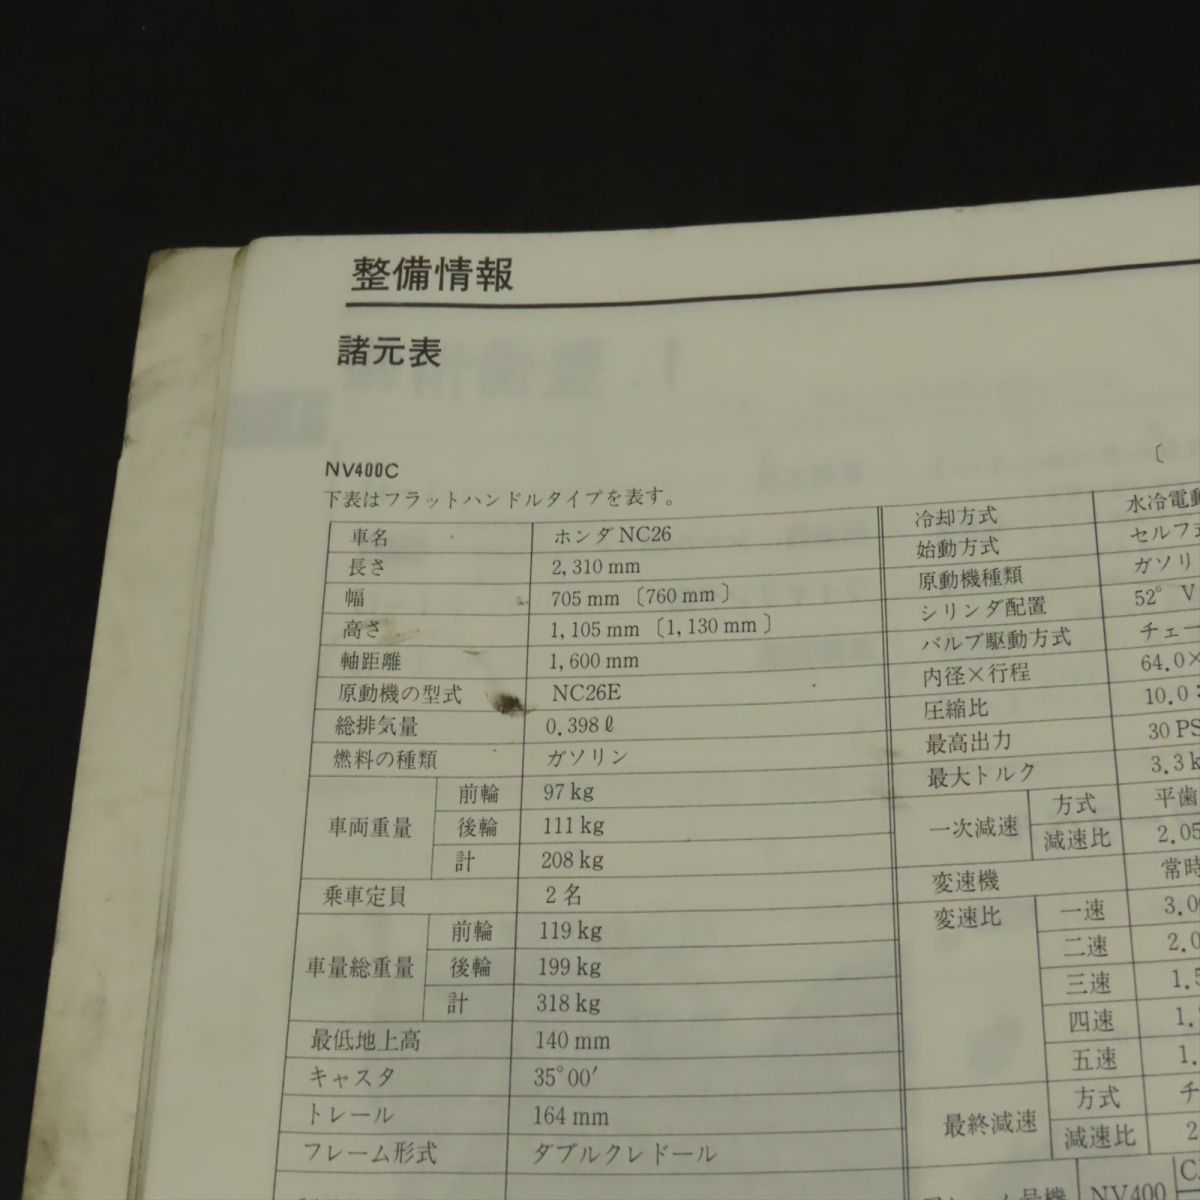 整備情報
諸元表
NV400C
下表はフラットハンドルタイプを表す。
車名 ホンダNC26
長さ 2,310 mm
幅 705 mm 〔760 mm〕
高さ 1,105 mm 〔1,130 mm〕
軸距離 1,600 mm
原動機の型式 NC26E
総排気量 0.398ℓ
燃料の種類 ガソリン
車両重量 前輪 97 kg
後輪 111 kg
計 208 kg
乗車定員 2 名
車量総重量 前輪 119 kg
後輪 199 kg
計 318 kg
最低地上高 140 mm
キャスタ 35°00′
トレール 164 mm
フレーム形式 ダブルクレドール
〔
冷却方式 水冷電動
始動方式 セルフ
原動機種類 ガソリ
シリンダ配置 52° V
バルブ駆動方式 チェー
内径×行程 64.0×
圧縮比 10.0
最高出力 30 PS
最大トルク 3.3 k
一次減速 方式 平歯
減速比 2.05
変速機 常時
変速比 一速 3.0
二速 2.0
三速 1.5
四速 1.
五速 1.
最終減速 方式 チ
減速比 2
NV400 C